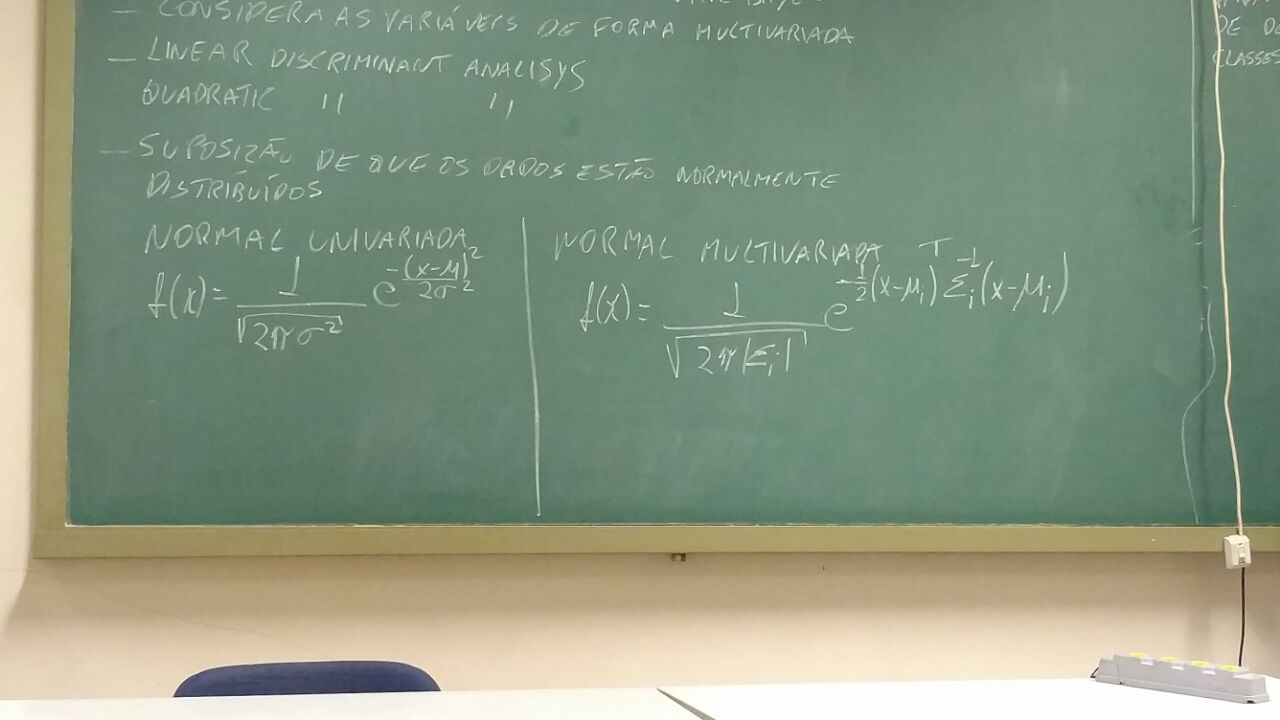 – CONSIDERA AS VARIÁVEIS DE FORMA MULTIVARIADA
– LINEAR DISCRIMINANT ANALISYS
QUADRATIC " "
– SUPOSIZÃO DE QUE OS DADOS ESTÃO NORMALMENTE
DISTRIBUÍDOS
NORMAL UNIVARIADA
f(x) = 1/√(2πσ²) e^(-(x-μ)²/2σ²)
NORMAL MULTIVARIADA
f(x) = 1/√(2π|Σᵢ|) e^(-1/2(x-μᵢ)ᵀ Σᵢ⁻¹(x-μᵢ))
DE
CLASSES